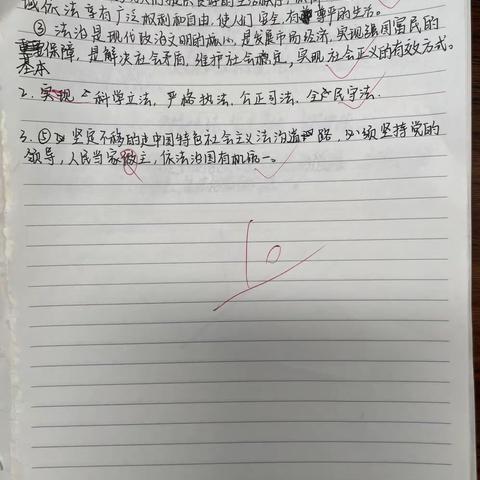 诚依法享有广泛权利和自由,使人们安全、有尊严的生活。
③ 法治是现代政治文明的核心,是发展市场经济、实现强国富民的
基本保障,是解决社会矛盾,维护社会稳定,实现社会正义的有效方式。
2. 科学立法、严格执法、公正司法、全民守法.
3. ⑤ 坚定不移的走中国特色社会主义法治道路,必须坚持党的
领导,人民当家做主,依法治国有机统一。